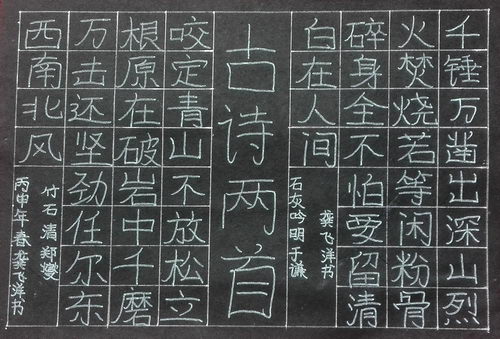 千锤万凿出深山烈
火焚烧若等闲粉骨
碎身全不怕要留清
白在人间
龚飞洋书
石灰吟 明 于谦
古诗两首
咬定青山不放松立
根原在破岩中千磨
万击还坚劲任尔东
西南北风
竹石 清 郑燮
丙申年 春 龚飞洋书